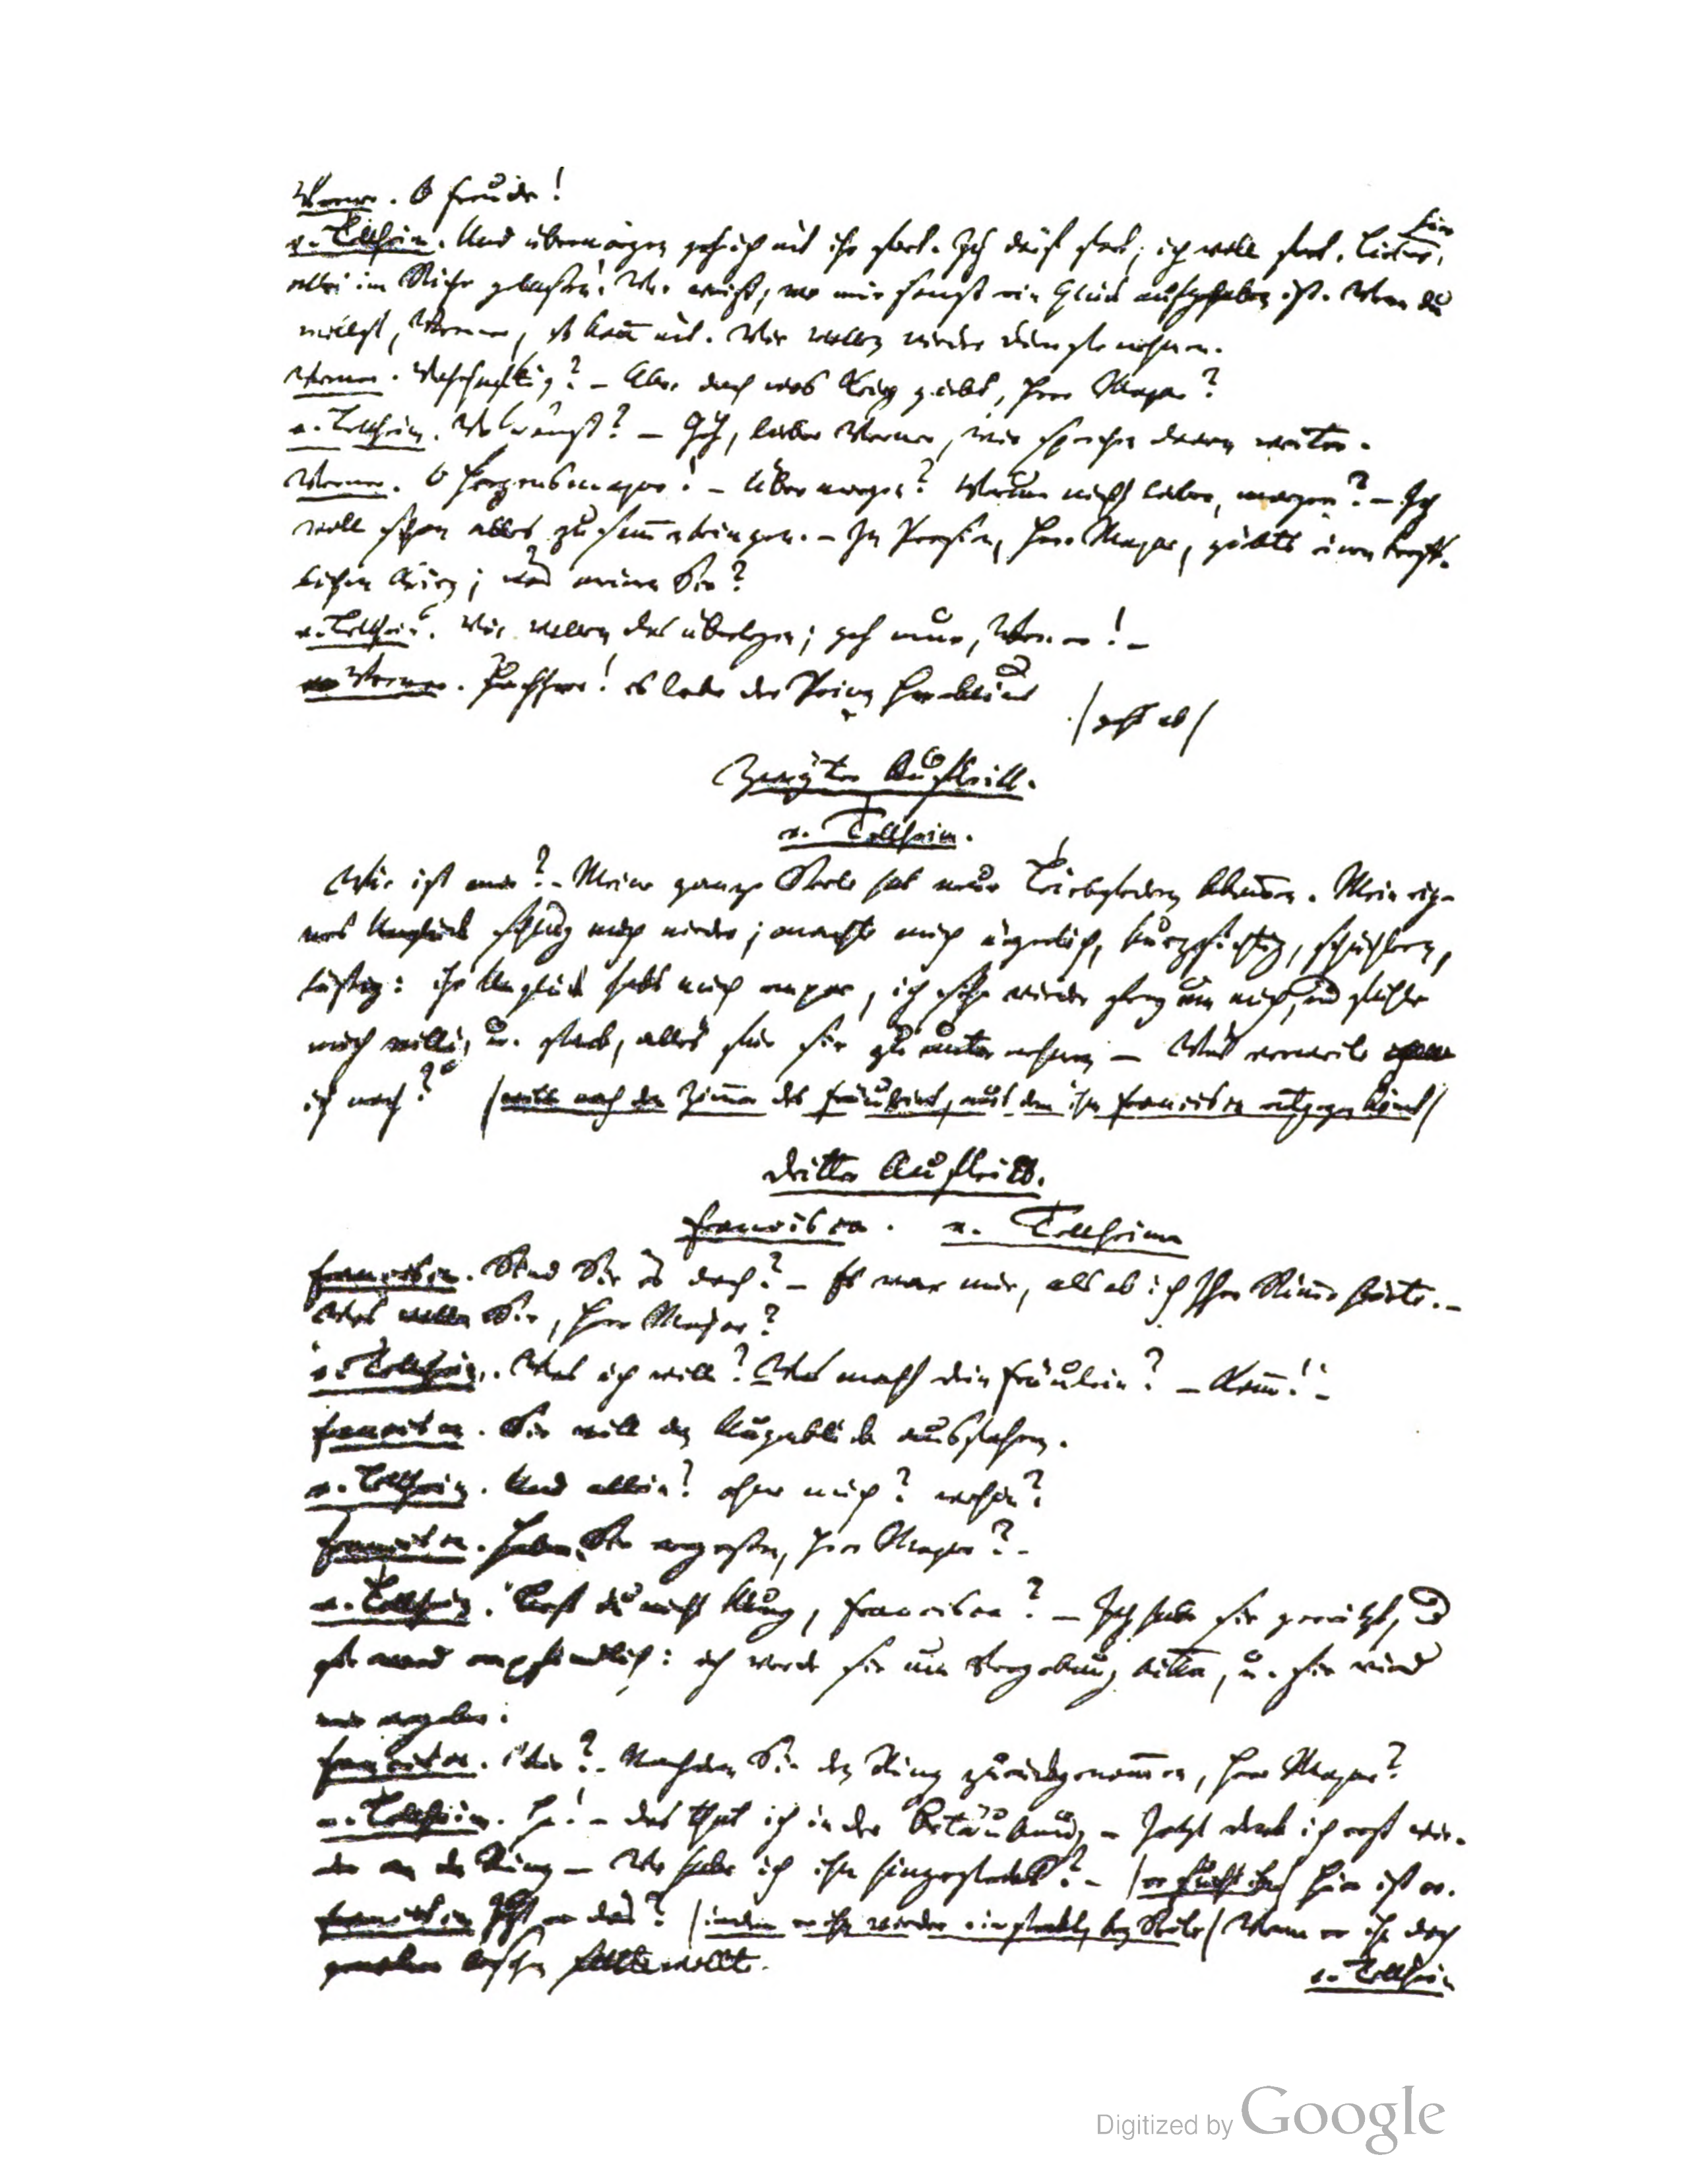 Werner. O Freude!
v. Tellheim. Und übermorgen geh ich mit ihr fort. Ich darf fort; ich will fort. Lieber,
hier
alles im Stiche gelassen! Wer weiß, wo mir sonst ein Glück aufgehoben ist. Wenn du
willst, Werner, so kom̄ mit. Wir wollen wieder Dienste nehmen.
Werner. Wahrhaftig? – Aber doch wos Krieg giebt, Herr Major?
v. Tellheim. Wo sonst? – Geh, lieber Werner, wir sprechen davon weiter.
Werner. O Herzensmajor! – Übermorgen? Warum nicht lieber, morgen? – Ich
will schon alles zusam̄enbringen. – In Persien, Herr Major, giebts einen treff-
lichen Krieg; was meinen Sie?
v. Tellheim. Wir wollen das überlegen; geh nur, Werner! –
Werner. Juchhee! es lebe der Prinz Heraklius
/geht ab/
Zweyter Auftritt.
v. Tellheim.
Wie ist mir? – Meine ganze Seele hat neue Triebfedern bekom̄en. Mein eig-
nes Unglück schlug mich nieder; machte mich ärgerlich, kurzsichtig, schüchtern,
läßig: ihr Unglück hebt mich empor, ich sehe wieder frey um mich, und fühle
mich willig u. stark, alles für sie zu unternehmen – Was verweile
ich noch? /will nach dem Zim̄er des Fräuleins, aus dem ihm Franciska entgegen köm̄t/
Dritter Auftritt.
Franciska. v. Tellheim
Franciska. Sind Sie es doch? – Es war mir, als ob ich Ihre Stim̄e hörte. –
Was wollen Sie, Herr Major?
v. Tellheim. Was ich will? Was macht dein Fräulein? – Kom̄! –
Franciska. Sie will den Augenblick ausfahren.
v. Tellheim. Und allein? ohne mich? wohin?
Franciska. Haben Sie vergessen, Herr Major? –
v. Tellheim. Bist du nicht klug, Franciska? – Ich habe sie gereitzt, und
sie ward empfindlich: ich werde sie um Vergebung bitten, u. sie wird
mir vergeben.
Franciska. Wie? – Nachdem Sie den Ring zurückgenom̄en, Herr Major?
v. Tellheim. Ha! – das that ich in der Betäubung – Jetzt denk ich erst wie-
der an den Ring – Wo habe ich ihn hingesteckt? – /er sucht ihn/ Hier ist er.
Franciska Ist er das? /indem er ihn wieder einsteckt, bey Seite/ Wenn er ihn doch
lassen wollte.
v. Tellheim
Digitized by Google